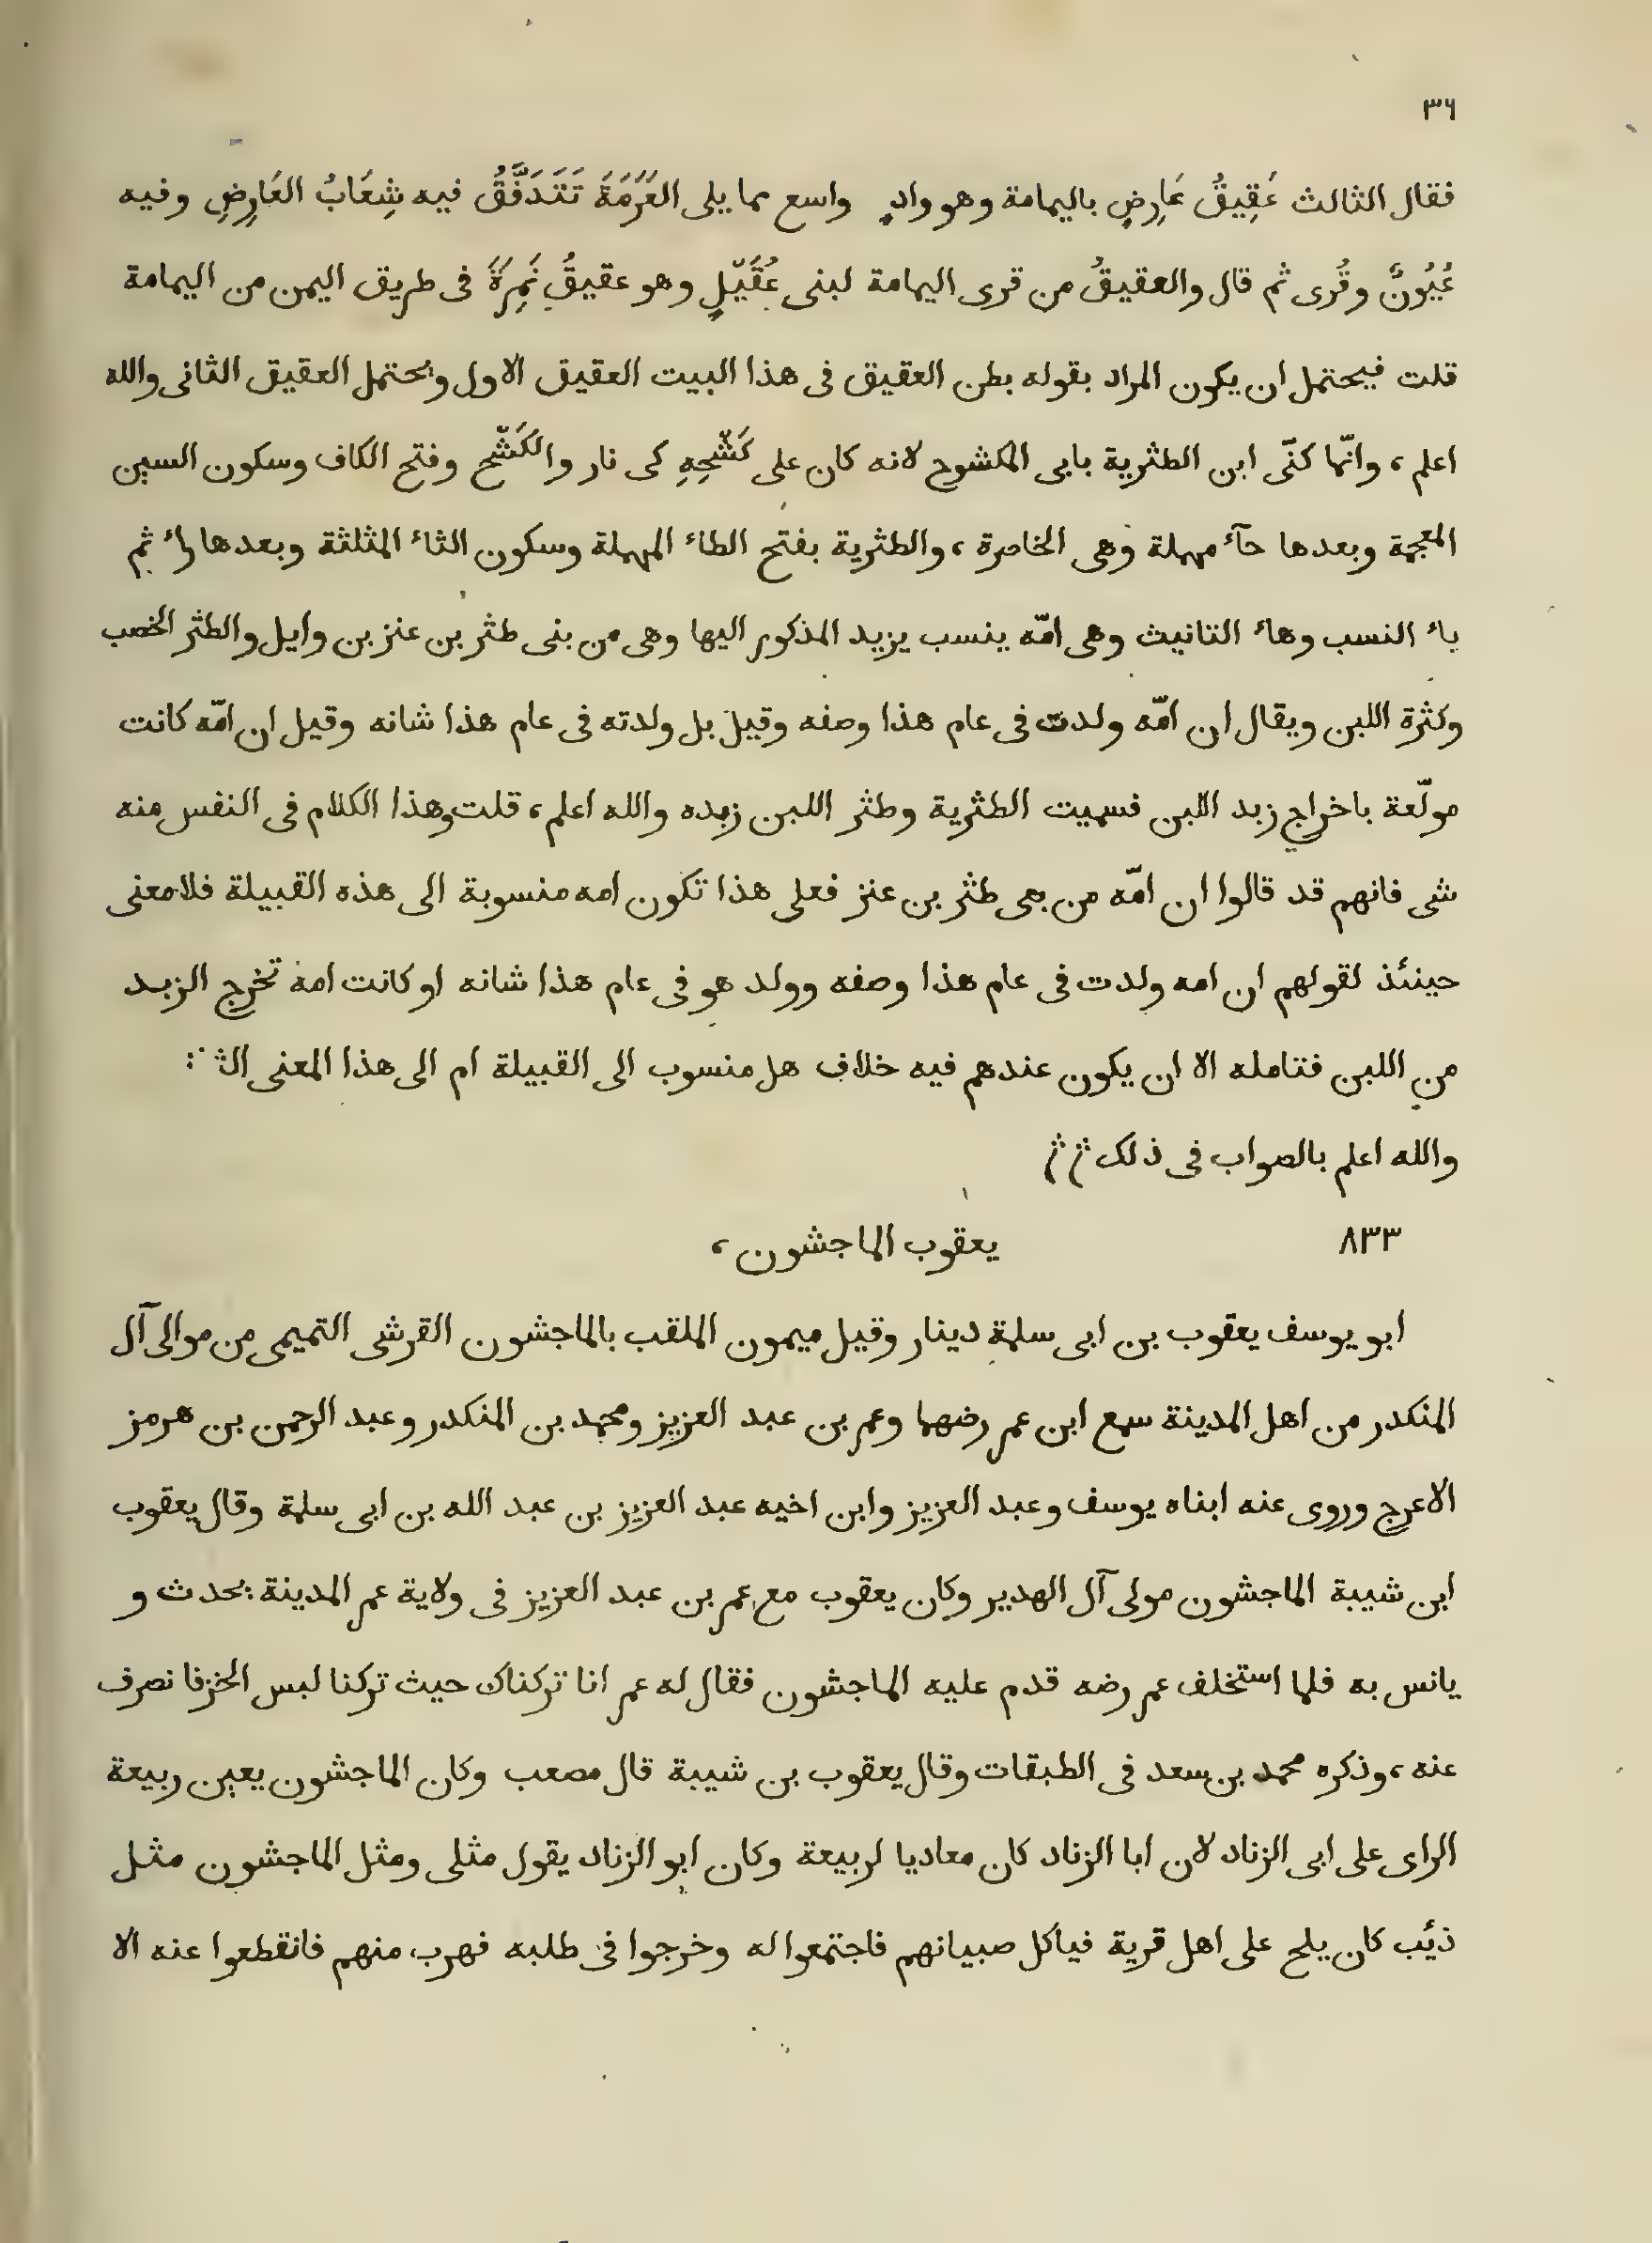 ٣٦
فقال الثالث عَقِيقُ عَارِضٍ باليمامة وهو وادٍ واسع مما يلى العَرَمَةَ تَتَدَفَّقُ فيه شِعَابُ العَارِضِ وفيه
عُيُونٌ وقُرى ثم قال والعقيقُ من قرى اليمامة لبنى عُقَيْلٍ وهو عقيقُ نَمِرَةَ فى طريق اليمن من اليمامة
قلت فيحتمل ان يكون المراد بقوله بطن العقيق فى هذا البيت العقيق الاول ويحتمل العقيق الثانى والله
اعلم، وانّما كنّى ابن الطثرية بابى المكشوح لانه كان على كَشْحِهِ كى نار والكَشْح وفتح الكاف وسكون السين
المعجمة وبعدها حآء مهملة وهى الخاصرة، والطثرية بفتح الطاء المهملة وسكون الثاء المثلثة وبعدها راء ثم
ياء النسب وهاء التانيث وهى امّه ينسب يزيد المذكور اليها وهى من بنى طثر بن عنز بن وايل والطثر الخصب
وكثرة اللبن ويقال ان امّه ولدت فى عام هذا وصفه وقيل بل ولدته فى عام هذا شانه وقيل ان امّه كانت
مولّعة باخراج زبد اللبن فسميت الطثرية وطثر اللبن زبده والله اعلم، قلت وهذا الكلام فى النفس منه
شى فانهم قد قالوا ان امّه من حى طثر بن عنز فعلى هذا تكون امه منسوبة الى هذه القبيلة فلا معنى
حينئذ لقولهم ان امه ولدت فى عام هذا وصفه وولد هو فى عام هذا شانه او كانت امه تخرج الزبد
من اللبن فتامله الا ان يكون عندهم فيه خلاف هل منسوب الى القبيلة ام الى هذا المعنى
والله اعلم بالصواب فى ذلك
٨٣٣ يعقوب الماجشون،
ابو يوسف يعقوب بن ابى سلمة دينار وقيل ميمون الملقب بالماجشون القرشى التميمى من موالى آل
المنكدر من اهل المدينة سمع ابن عمر رضهما وعمر بن عبد العزيز ومحمد بن المنكدر وعبد الرحمن بن هرمز
الاعرج وروى عنه ابناه يوسف وعبد العزيز وابن اخيه عبد العزيز بن عبد الله بن ابى سلمة وقال يعقوب
ابن شيبة الماجشون مولى آل الهدير وكان يعقوب مع عمر بن عبد العزيز فى ولاية عمر المدينة يحدث و
يانس به فلما استخلف عمر رضه قدم عليه الماجشون فقال له عمر انا تركناك حيث تركنا لبس الخزفا نصرف
عنه، وذكره محمد بن سعد فى الطبقات وقال يعقوب بن شيبة قال مصعب وكان الماجشون يعين ربيعة
الراى على ابى الزناد لان ابا الزناد كان معاديا لربيعة وكان ابو الزناد يقول مثلى ومثل الماجشون مثل
ذئب كان يلح على اهل قرية فياكل صبيانهم فاجتمعوا له وخرجوا فى طلبه فهرب منهم فانقطعوا عنه الا